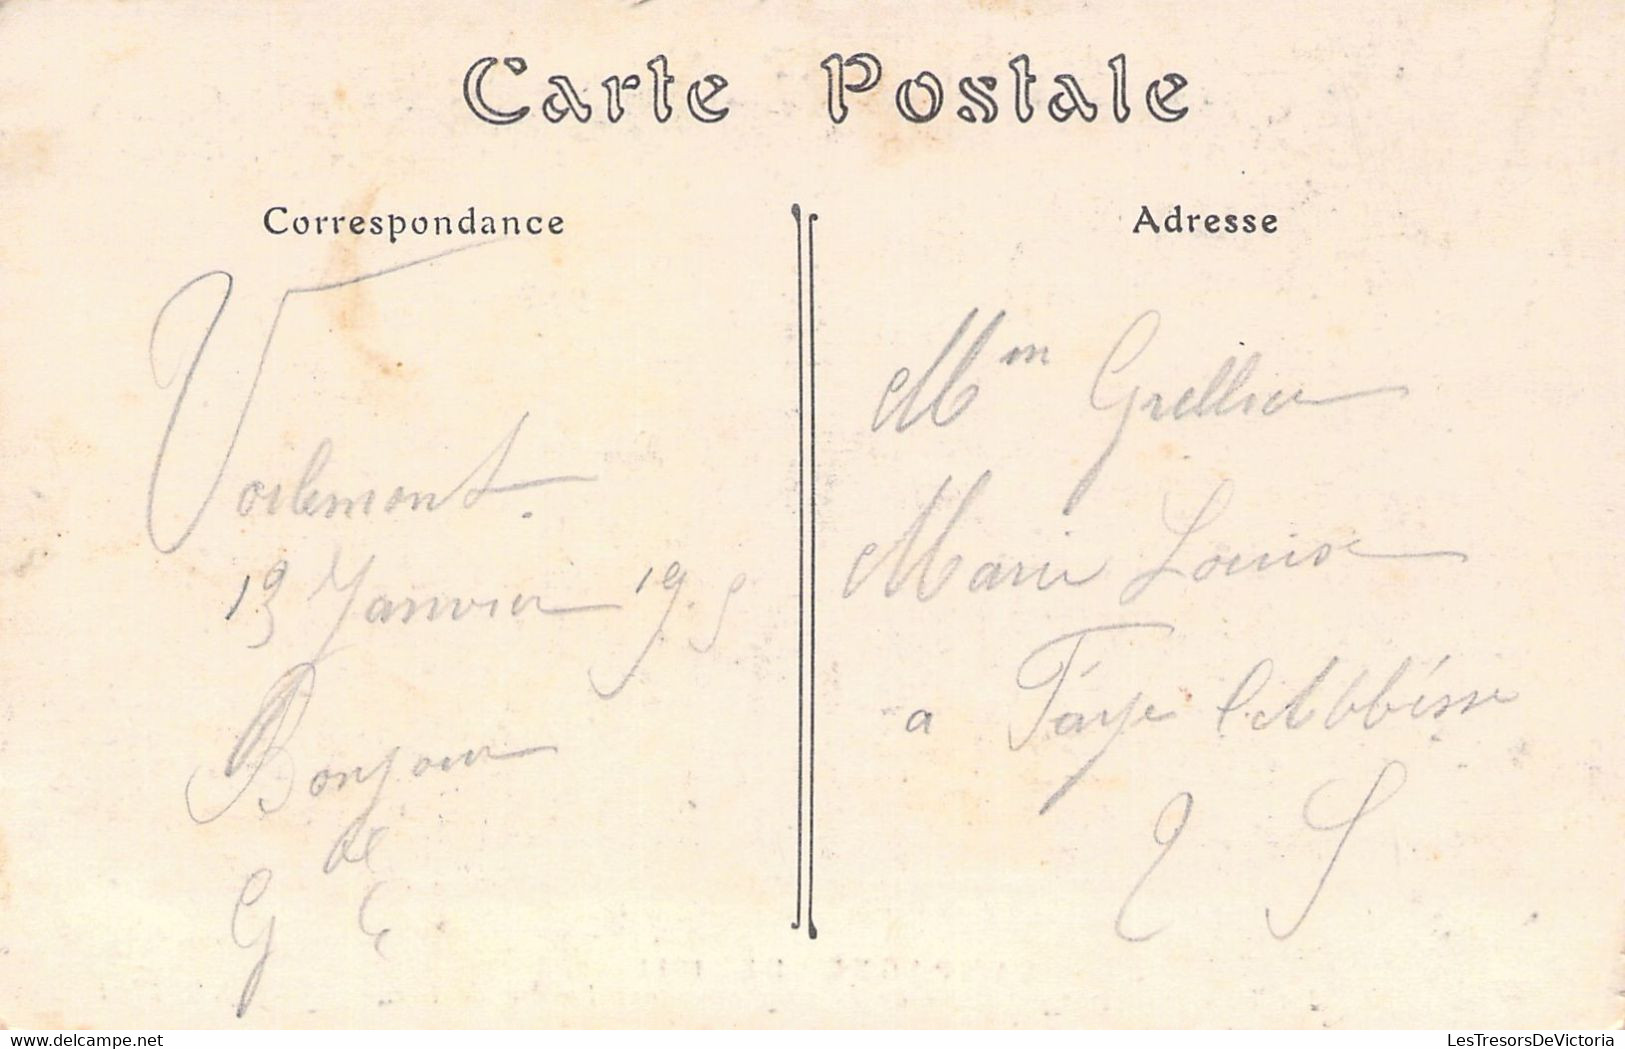 Carte Postale
Correspondance
Voilemont.
13 Janvier 1915
Bonjour
de
G G
Adresse
Mm Grellier
Marie Louise
a Faye l'Abbesse
2 S
delcampe.net
LesTresorsDeVictoria